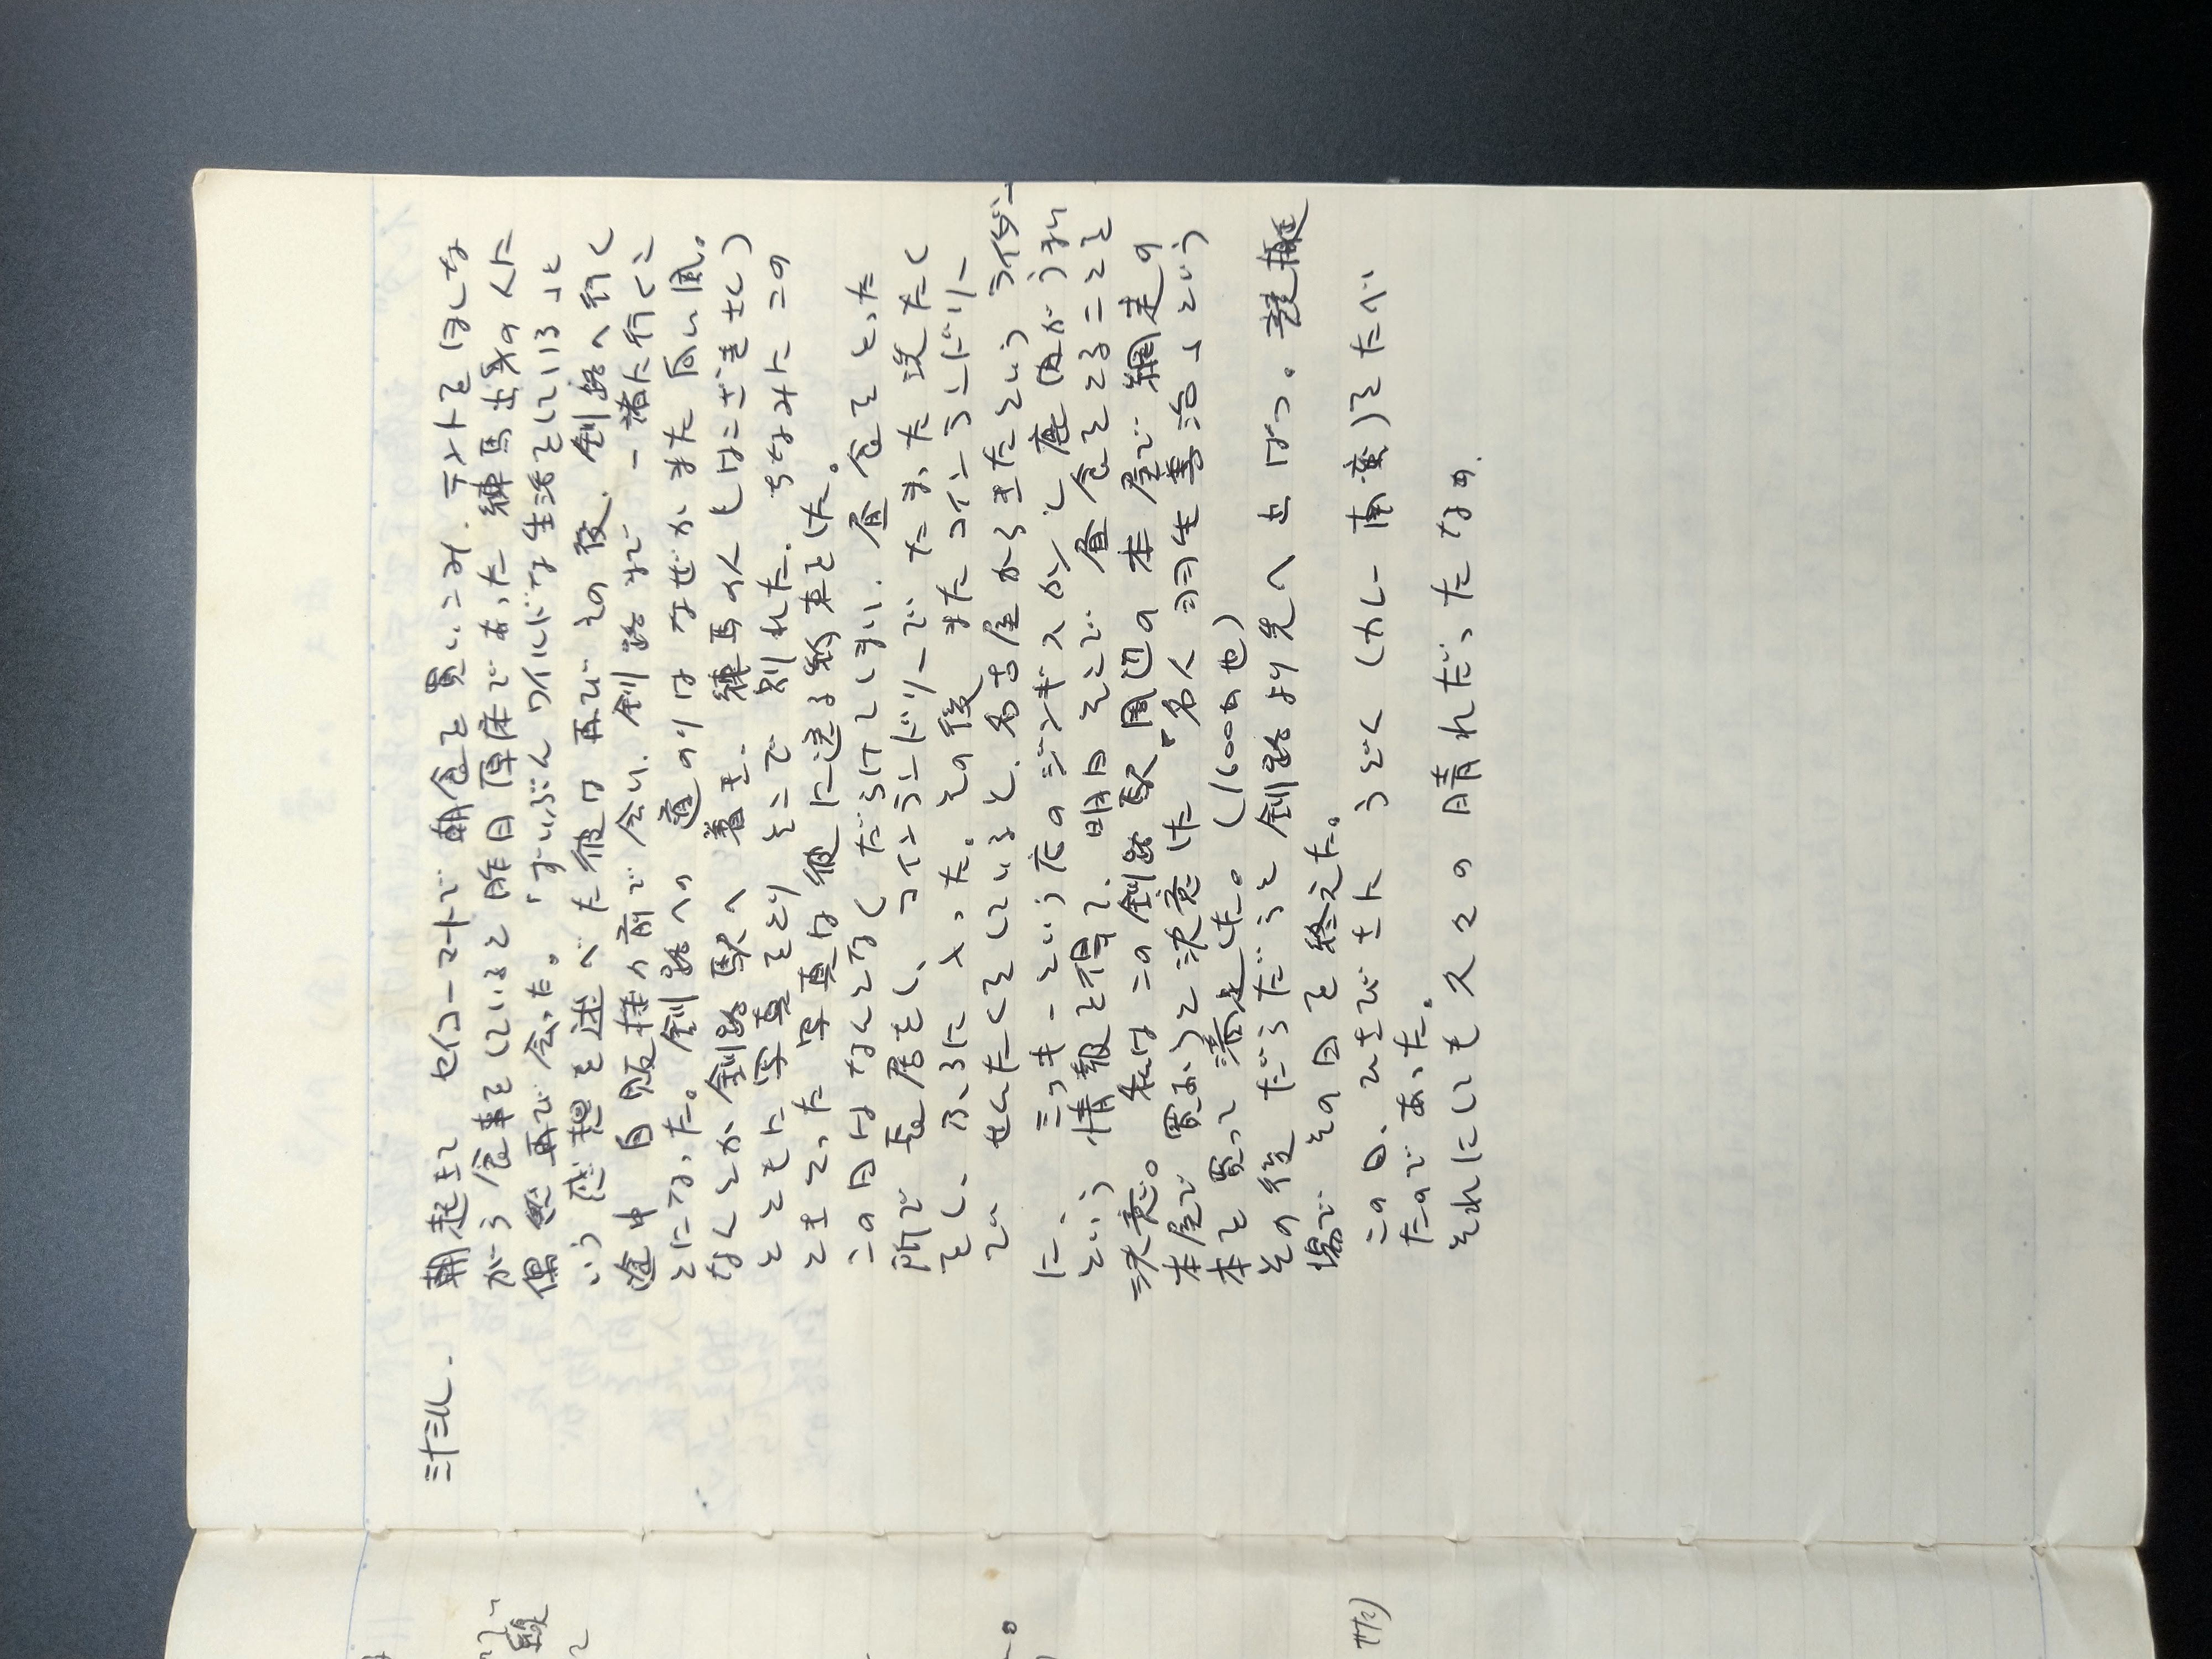 三十三ル.
朝起きて セイコーマートで 朝食を買いこみ. テントをほしな
がら食事をしていると 昨日 厚床であった 練馬出身の人に
偶然再び会った。「ずいぶんワイルドな生活をしている」と
いう感想を述べた彼は 再びその後、釧路へ行く
途中 自販機の前で会い. 釧路まで 一緒に行くこ
とになった。釧路への道のりは なぜか また向い風。
なんとか釧路駅へ 着き. 練馬の人(
とともに写真をとり そこで別れた. ちなみにこの
ときとった写真は彼に送る約束をした。
この日はなんとなくだらけてしまい. 昼食をとった
所で長居をし、コインランドリーで たまった洗たく
をし、ふろに入った。その後 またコインランドリー
で せんたくをしていると. 名古屋からきたという ライダー
に.
という情報を得て. 明日そこで 昼食をとることを
決意。私はこの釧路駅周辺の本屋で 網走の
本屋で買おうと決意した "名人 というう
本を買って満足した。(1600円也)
その後 だらだらと 釧路より先へ
場で その日を終えた。
この日、ひさびさに うどん (カレー南蛮)をたべ
たのであった。
それにしても 久々の 晴れだったなぁ.